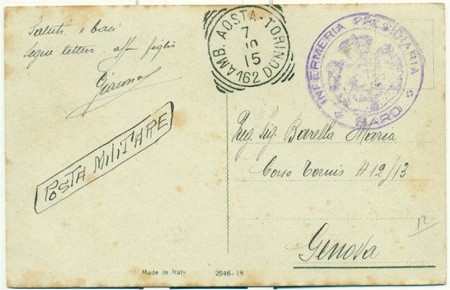 Saluti e baci
Segue lettera aff.mo figlio
Giacomo
POSTA MILITARE
AMB. AOSTA-TORINO
7
10
15
162
INFERMERIA PRESIDIARIA
BARD
Sig. Barella Maria
Corso Torino # 12/13
Genova
12
Made in Italy
2946-18